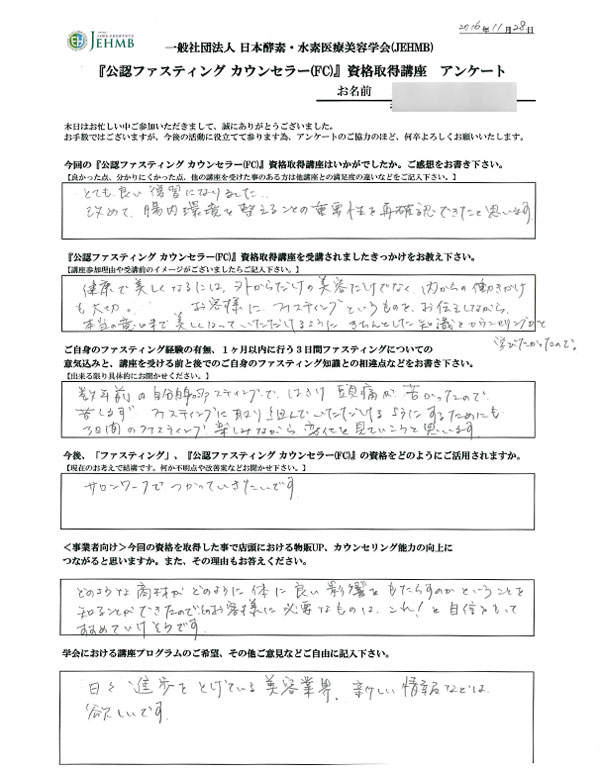 2016年11月28日
JEHMB
一般社団法人 日本酵素・水素医療美容学会(JEHMB)
『公認ファスティング カウンセラー(FC)』資格取得講座　アンケート
お名前
本日はお忙しい中ご参加いただきまして、誠にありがとうございました。
お手数ではございますが、今後の活動に役立てて参ります為、アンケートのご協力のほど、何卒よろしくお願いいたします。
今回の『公認ファスティング カウンセラー(FC)』資格取得講座はいかがでしたか。ご感想をお書き下さい。
【良かった点、分かりにくかった点、他の講座を受けた事のある方は他講座との満足度の違いなどをご記入下さい。】
とても良い復習になりました。
改めて、腸内環境を整えることの重要性を再確認できたと思います
『公認ファスティング カウンセラー(FC)』資格取得講座を受講されましたきっかけをお教え下さい。
【講座参加理由や受講前のイメージがございましたらご記入下さい。】
健康で美しくなるには、外からだけの美容だけでなく、内からの働きかけ
も大切。　お客様に、ファスティングというものを、お伝えしながら、
本当の意味で美しくなっていただけるように きちんとした知識とカウンセリングを
学びたかったので。
ご自身のファスティング経験の有無、１ヶ月以内に行う３日間ファスティングについての
意気込みと、講座を受ける前と後でのご自身のファスティング知識との相違点などをお書き下さい。
【出来る限り具体的にお聞かせください。】
数年前の自分のファスティングで、はき気 頭痛が 苦かったので
苦しまず ファスティングに取り組んでいただけるようにするためにも
3日間のファスティング 楽しみながら 変化を見ていこうと思います
今後、「ファスティング」、『公認ファスティング カウンセラー(FC)』の資格をどのようにご活用されますか。
【現在のお考えで結構です。何か不明点や改善案などお聞かせ下さい。】
サロンワークで つかっていきたいです
＜事業者向け＞今回の資格を取得した事で店頭における物販UP、カウンセリング能力の向上に
つながると思いますか。また、その理由もお答えください。
どのような商材が どのように 体に 良い 影響を もたらすのか ということを
知ることができたので、お客様に 必要なものは、これ！と自信をもって
すすめていけそうです。
学会における講座プログラムのご希望、その他ご意見などご自由に記入下さい。
日々 進歩をとげている 美容業界。 新しい 情報などは
欲しいです。